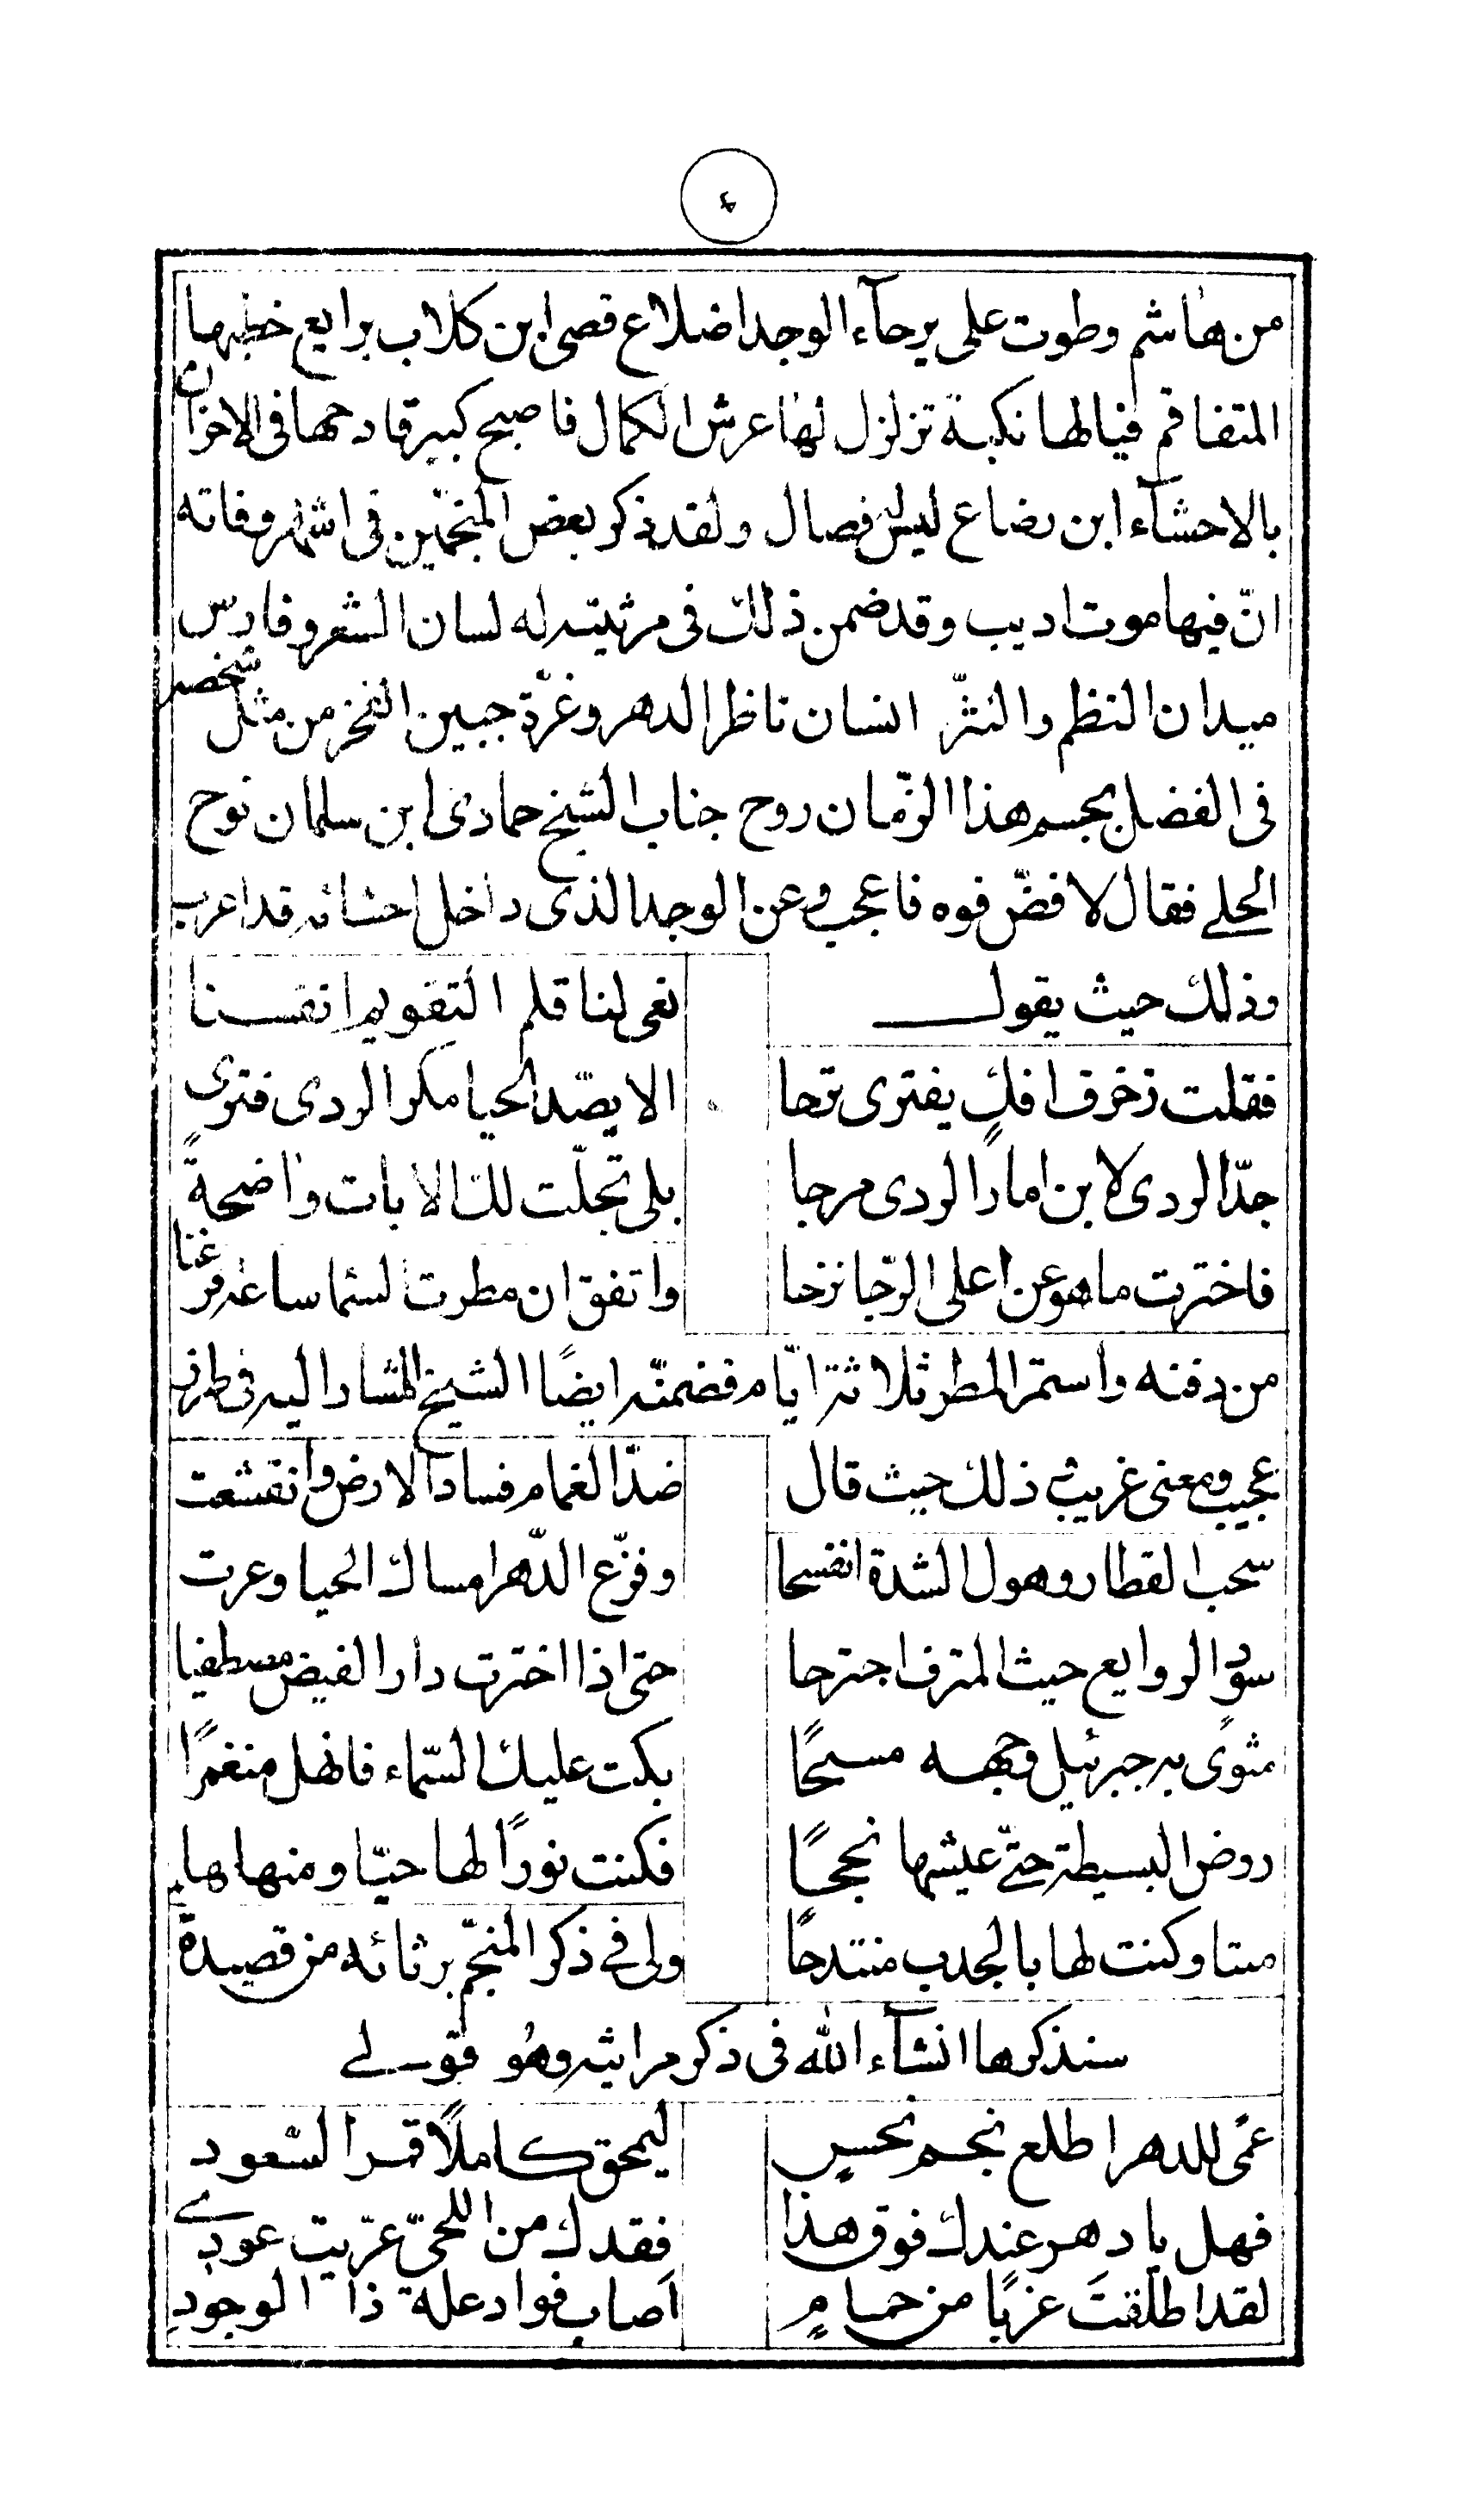 ٤
من هاشم وطوت على برحآء الوجد اضلاع قصى ابن كلاب برايع خطبها
المتفاقم فيالها نكبة تزلزل لها عرش الكمال فاصبح كبير قادحها فى الاخزان
بالاحشآء ابن رضاع ليس له فصال ولقد ذكر بعض المنجّمين فى اشهر وفاته
انّ فيها موت اديب وقد ضمن ذلك فى مرثيته له لسان الشعر وفارس
ميدان النظم والنثرّ انسان ناظر الدهر وغرّة جبين الفخر من مثل شخصه
فى الفضل بجسم هذا الزّمان روح جناب الشيخ حمادى ابن سلمان نوح
الحلے فقال لا فضّ فوه فاعجب وعن الوجد الذى داخل احشائه قد اعرب
وذلك حيث يقول نعى لنا قلم التقويم انفسنا
فقلت زخرف افكٍ يفترى ترحا الا يصّد الحيا مكر الردى فترى
جدّ الردى لابن امار الردى مرحا بلى تجلّت لك الايات واضحةً
فاخترت ما هو عن اعلى الرّجا نزحا واتفق ان مطرت السّما ساعة فرغنا
من دفنه واستمرّ المطر ثلاثة ايّام فضمنّه ايضًا الشيخ المشار اليه فى طرز
عجيب ومعنى غريب ذلك حيث قال ضدّ الغمام فساد الارض وانقشعت
سحب القطار وهول الشدة انفسحا وفزّع الدّهر امساك الحيا وعرت
سود الروايع حيث المترف اجترحا حتى اذا اخترت دار الفيض مصطفيا
مثوًى به جبرئيل وجهه مسحًا بكت عليك السّماء فانهل منغمرًا
روض البسيطة حتّى عيشها نجحًا فكنت نورًا لها حيّا ومنهلها
ميتا وكنت لها بالجدب منتدحًا ولى فے ذكر المنجّم برثائه من قصيدة
سنذكرها انشآء الله فى ذكر مراثيه وهو قولے
عمًى للدهر اطلع نجم نحسٍ ليمحق كاملًا قمر السّعود
فهل يا دهر عندك فوق هذا فقدك من اللحىّ عرّيت عودى
لقد اطلقتَ غربًا من حمامٍ اصاب فواد علة ذا الوجودِ